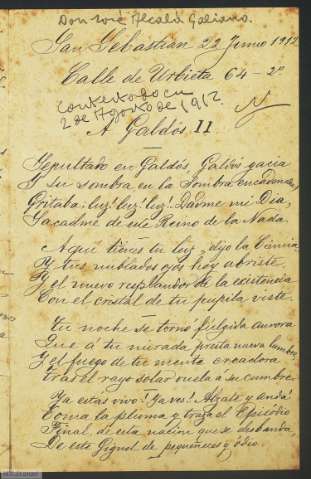 Don José Alcalá Galiano.
San Sebastián 22 Junio 1912
Calle de Urbieta 64-2º
Contestado en
2 de Agosto de 1912
A Galdós II
Sepultado en Galdós, Galdós yacía
Y su sombra en la sombra encadenada,
Gritaba: luz! luz! luz! Dadme mi Día,
Sacadme de este Reino de la Nada.
Aquí tienes tu luz, dijo la Ciencia,
Y tus nublados ojos hoy abriste,
Y el nuevo resplandor de la existencia
Con el cristal de tu pupila viste.
Tu noche se tornó fúlgida aurora
Que á tu mirada presta nueva lumbre
Y el fuego de tu mente creadora
Tras el rayo solar vuela á su cumbre.
Ya estás vivo! Ya ves! Alzate y anda!
Toma la pluma y traza el Episodio
Final de esta nación que se desbanda,
De este Gignol de pequeñeces y odio.